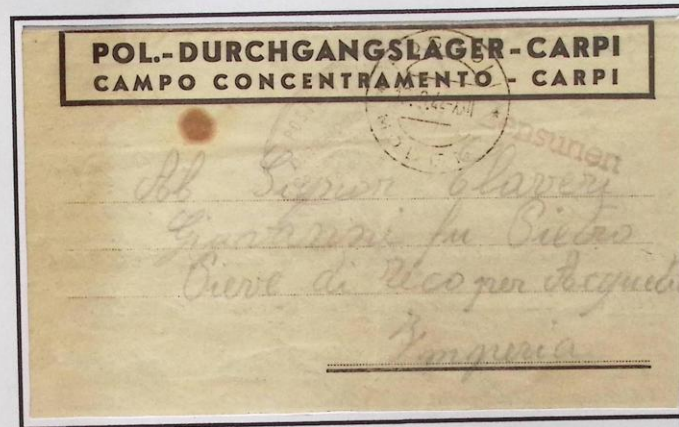 POL.-DURCHGANGSLAGER-CARPI
CAMPO CONCENTRAMENTO - CARPI
Zensuriert
Al Signor Claveri
Giovanni fu Pietro
Pieve di Teco per
Imperia